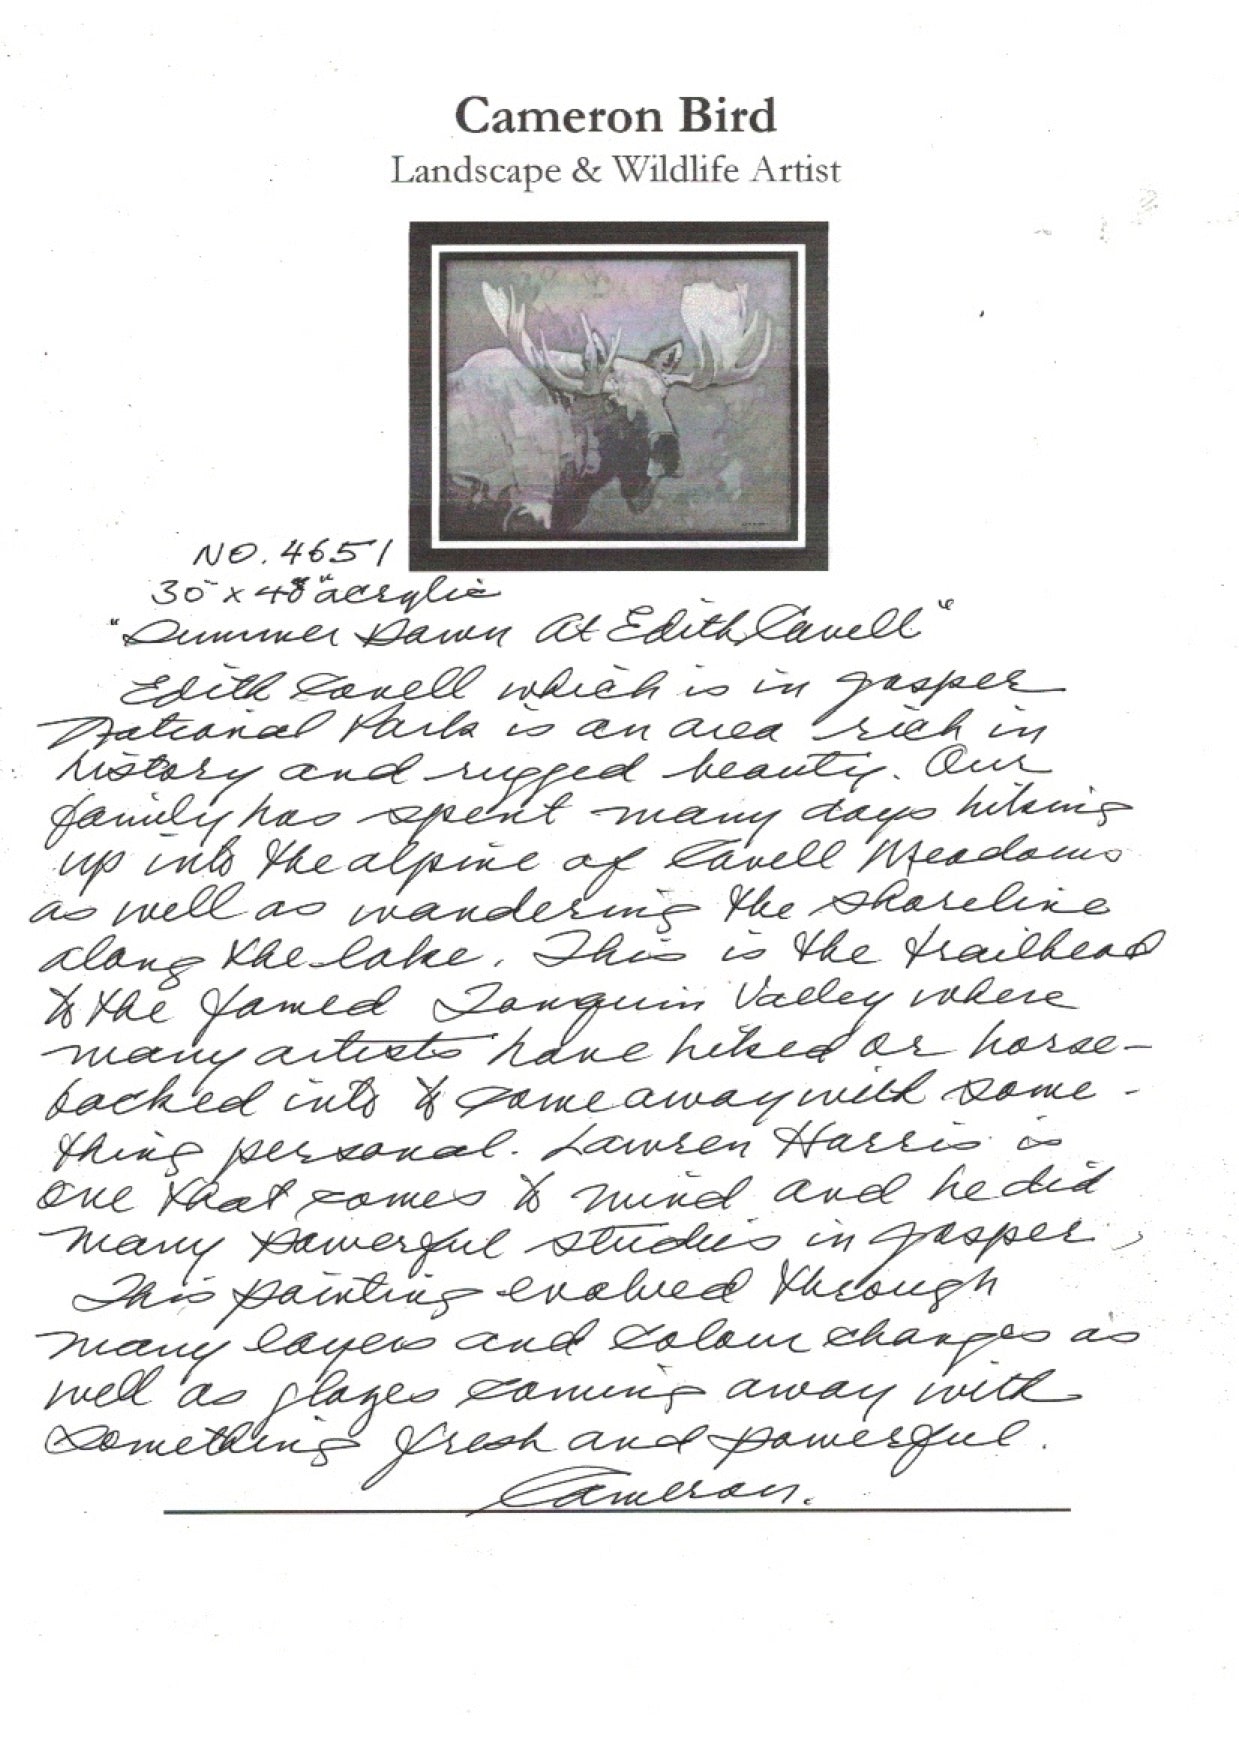 Cameron Bird
Landscape & Wildlife Artist
NO. 4651
30" x 48" acrylic
"Summer Dawn At Edith Cavell"
Edith Cavell which is in Jasper
National Park is an area rich in
history and rugged beauty. Our
family has spent many days hiking
up into the alpine of Cavell Meadows
as well as wandering the shoreline
along the lake. This is the trailhead
to the famed Tonquin Valley where
many artists have hiked or horse-
backed into to come away with some-
thing personal. Lawren Harris is
one that comes to mind and he did
many powerful studies in Jasper,
This painting evolved through
many layers and colour changes as
well as glazes coming away with
something fresh and powerful.
Cameron.